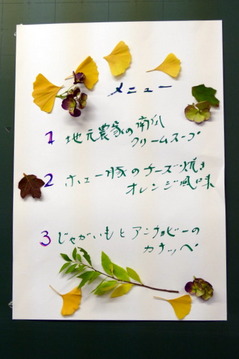 メニュー
1 地元農家の南瓜
クリームスープ
2 ホエー豚のチーズ焼き
オレンジ風味
3 じゃがいもとアンチョビーの
カナッペ